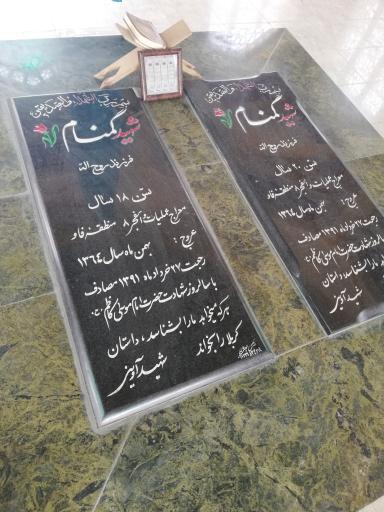 شهید گمنام
فرزند روح الله
سن ۱۸ سال
معراج عملیات والفجر ۸ منطقه فاو
عروج: بهمن ماه سال ۱۳۶۴
رجعت ۲۷ خرداد ماه ۱۳۹۱ مصادف
با سالروز شهادت حضرت امام موسی کاظم (ع)
هر که میخواهد ما را بشناسد، داستان
کربلا را بخواند
شهید آوینی
شهید گمنام
فرزند روح الله
سن ۲۰ سال
معراج عملیات والفجر ۸ منطقه فاو
عروج: بهمن ماه سال ۱۳۶۴
رجعت ۲۷ خرداد ماه ۱۳۹۱ مصادف
با سالروز شهادت حضرت امام موسی کاظم
هر که میخواهد ما را بشناسد، داستان
شهید آوینی